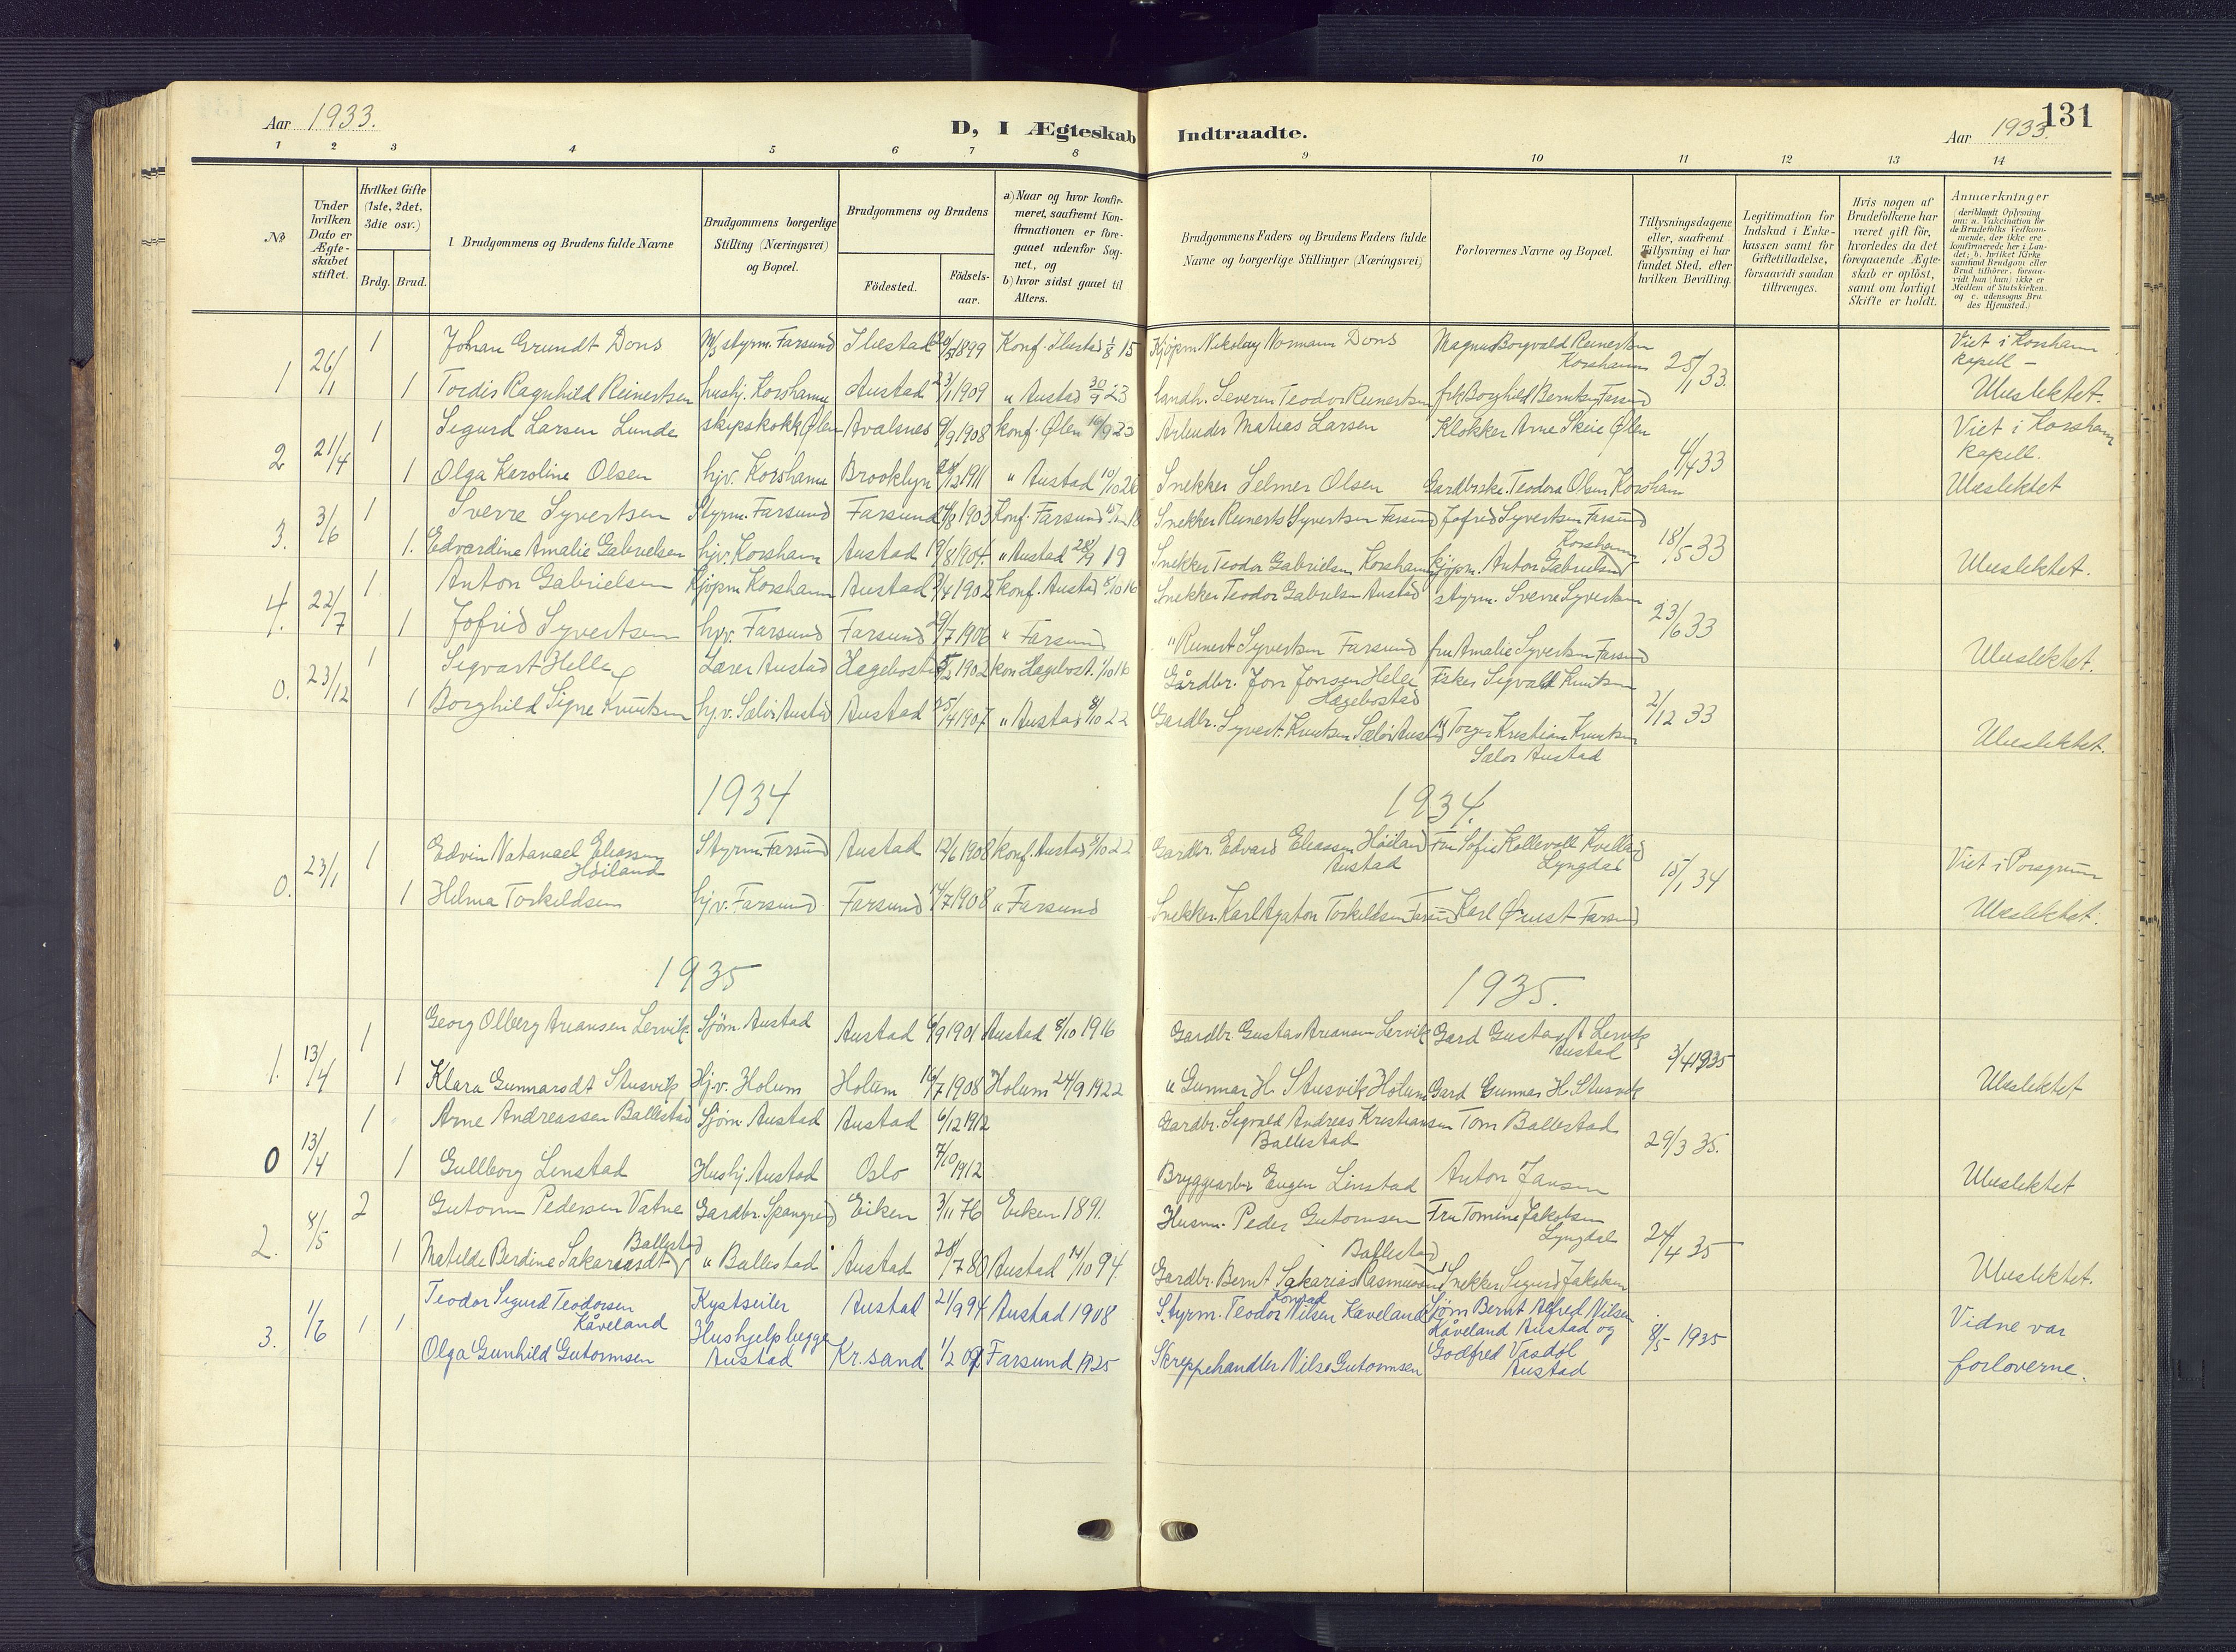 Aar 1933.
D, I Ægteskab Indtraadte.
131
Aar 1933.
1 2 3 4 5 6 7 8 9 10 11 12 13 14
No
Under hvilken Dato er Ægteskabet stiftet.
Hvilket Gifte (1ste, 2det, 3die osv.)
Brdg. Brud.
Brudgommens og Brudens fulde Navne
Brudgommens borgerlige Stilling (Næringsvei) og Bopæl.
Brudgommens og Brudens
Födested.
Födsels-aar.
a) Naar og hvor konfirmeret, saafremt Konfirmationen er foregaaet udenfor Sognet, og
b) hvor sidst gaaet til Alters.
Brudgommens Faders og Brudens Faders fulde Navne og borgerlige Stillinger (Næringsvei)
Forlovernes Navne og Bopæl.
Tillysningsdagene eller, saafremt Tillysning ei har fundet Sted, efter hvilken Bevilling.
Legitimation for Indskud i Enkekassen samt for Giftetilladelse, forsaavidt saadan tiltrænges.
Hvis nogen af Brudefolkene har været gift för, hvorledes da det foregaaende Ægteskab er oplöst, samt om lovligt Skifte er holdt.
Anmærkninger (deriblandt Oplysning om: a. Vakcination for de Brudefolks Vedkommende, der ikke ere konfirmerede her i Landet; b. hvilket Kirkesamfund Brudgom eller Brud tilhörer, forsaavidt han (hun) ikke er Medlem af Statskirken. og c. udensogns Brudes Hjemsted.)
1 26/1 1 Johan Grundt Dons M/S styrm. Farsund Ibestad 1899 Konf. Ibestad 1/8 15 Kjøpm Nikolay Normann Dons Magnus Borgvald Reinertsen Korshamn 25/1 33. Viet i Korshamn kapell –
1 Tordis Ragnhild Reinertsen hushj. Korshamn Austad 23/1 1909 " Austad 30/9 23 landh. Severin Teodor Reinertsen frk Borghild Berntsen Farsund Ubeslektet.
2 21/4 1 Sigurd Larsen Lunde skipskokk Ølen Avalsnes 9/9 1908 konf. Ølen 16/9 23 Arbeider Matias Larsen Klokker Arne Skeie Ølen 4/4 33 Viet i Korshamn kapell.
1 Olga Karoline Olsen hjv. Korshamn Brooklyn 1911 " Austad 10/10 26 Snekker Selmer Olsen Gardbrske. Teodora Olsen Korsham Ubeslektet
3. 3/6 1 Sverre Syvertsen Styrm. Farsund Farsund 1903 Konf. Farsund 18 Snekker Reinert Syvertsen Farsund Jofrid Syvertsen Farsund 18/5 33
1. Edvardine Amalie Gabrielsen hjv. Korshamn Austad 19/8 1904. " Austad 28/9 19 Snekker Teodor Gabrielsen Korshamn kjøpm. Anton Gabrielsen Korshamn Ubeslektet.
4. 22/7 1 Anton Gabrielsen Kjöpm Korshamn Austad 1902 konf. Austad 8/10 16 Snekker Teodor Gabrielsen Austad styrm. Sverre Syvertsen 23/6 33
1 Jofrid Syvertsen hjv. Farsund Farsund 1906 " Farsund " Reinert Syvertsen Farsund fru Amalie Syvertsen Farsund Ubeslektet.
0. 23/12 1 Sigvart Helle Lærer Austad Hægebostad 1902 kon Hægebost. 1/10 16 Gårdbr. Jon Jonsen Helle Hægebostad Fisker Sigvald Knutsen 2/12 33
1 Borghild Signe Knutsen hj.v. Sælör Austad Austad 25/4 1907 " Austad 8/10 22 Gardbr. Syvert Knutsen Sælör Austad " Torger Kristian Knutsen Sælør Austad Ubeslektet.
1934 1934.
0. 23/1 1 Edvin Natanael Eliassen Höiland Styrm. Farsund Austad 12/6 1908 konf. Austad 8/10 22 Gardbr. Edvard Eliassen Höiland Austad Fru Sofie Kallevoll Kvelland Lyngdal 15/1 34 Viet i Porsgrunn
1 Helma Torkildsen hjv. Farsund Farsund 14/7 1908 " Farsund Snekker. Karl Agaton Torkildsen Farsund Karl Ørust Farsund Ubeslektet.
1935 1935.
1. 13/4 1 Georg Olberg Areansen Lervik Sjöm. Austad Austad 6/9 1901 Austad 8/10 1916 Gardbr. Gustav Areansen Lervik Gard Gustav A Lervik Austad 3/4 1935
1 Klara Gunnarsdt Stusvik Hj.v. Holum Holum 16/7 1908 Holum 24/9 1922 " Gunnar H. Stusvik Holum Gard Gunnar H. Stusvik Ubeslektet
0 13/4 1 Arne Andreassen Ballestad Sjöm. Austad Austad 6/12 1912 Gardbr. Sigvald Andreas Kristiansen Ballestad Tom Ballestad 29/3 35.
1 Gullborg Linstad Hushj. Austad Oslo 7/10 1912 Bryggearbr Eugen Linstad Anton Jansen Ubeslektet
2. 8/5 2 Gutorm Pedersen Vatne Gardbr. Spangreid Eiken 3/11 76 Eiken 1891. Husmn. Peder Gutormsen Fru Tomine Jakobsen Lyngdal 24/4 35
1 Matilde Berdine Sakariasdt Ballestad " Ballestad Austad 28/7 80 Austad 14/10 94. Gardbr. Bernt Sakarias Rasmussen Ballestad Snekker Sigurd Jakobsen Ubeslektet.
3. 1/6 1 1 Teodor Sigurd Teodorsen Kåveland Kystseiler Austad 21/9 94 Austad 1908 Styrm. Teodor Konrad Nilsen Kaveland Sjöm Bernt Alfred Nilsen Kåveland Austad og 8/5 – 1935 Vidne var
Olga Gunhild Gutormsen Hushjelp begge Austad Kr.sand 1/2 09 Farsund 1925 Skreppehandler Nils Gutormsen Godtfred Vasdøl Austad forloverne.